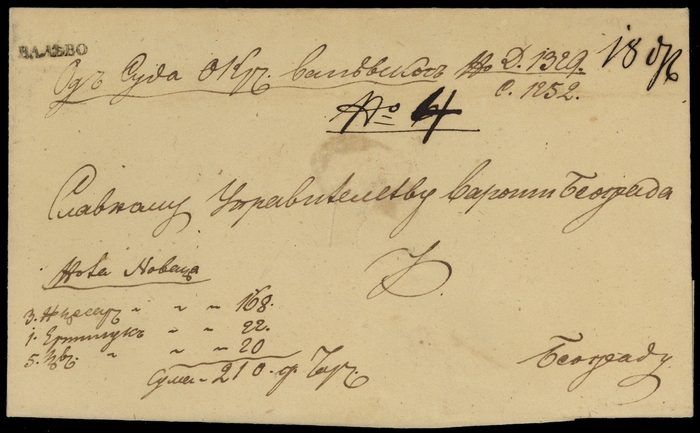 ВАЛѣВО
Одъ Суда Окр. Валѣвскогъ No Д. 1329.
С. 1252.
18
No 4
Славному Управителству Вароши Београда
У
Нота Новаца
3. 168.
1. 22.
5. 20
Сума 210. Чар.
Београду.